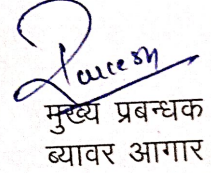 मुख्य प्रबन्धक
ब्यावर आगार